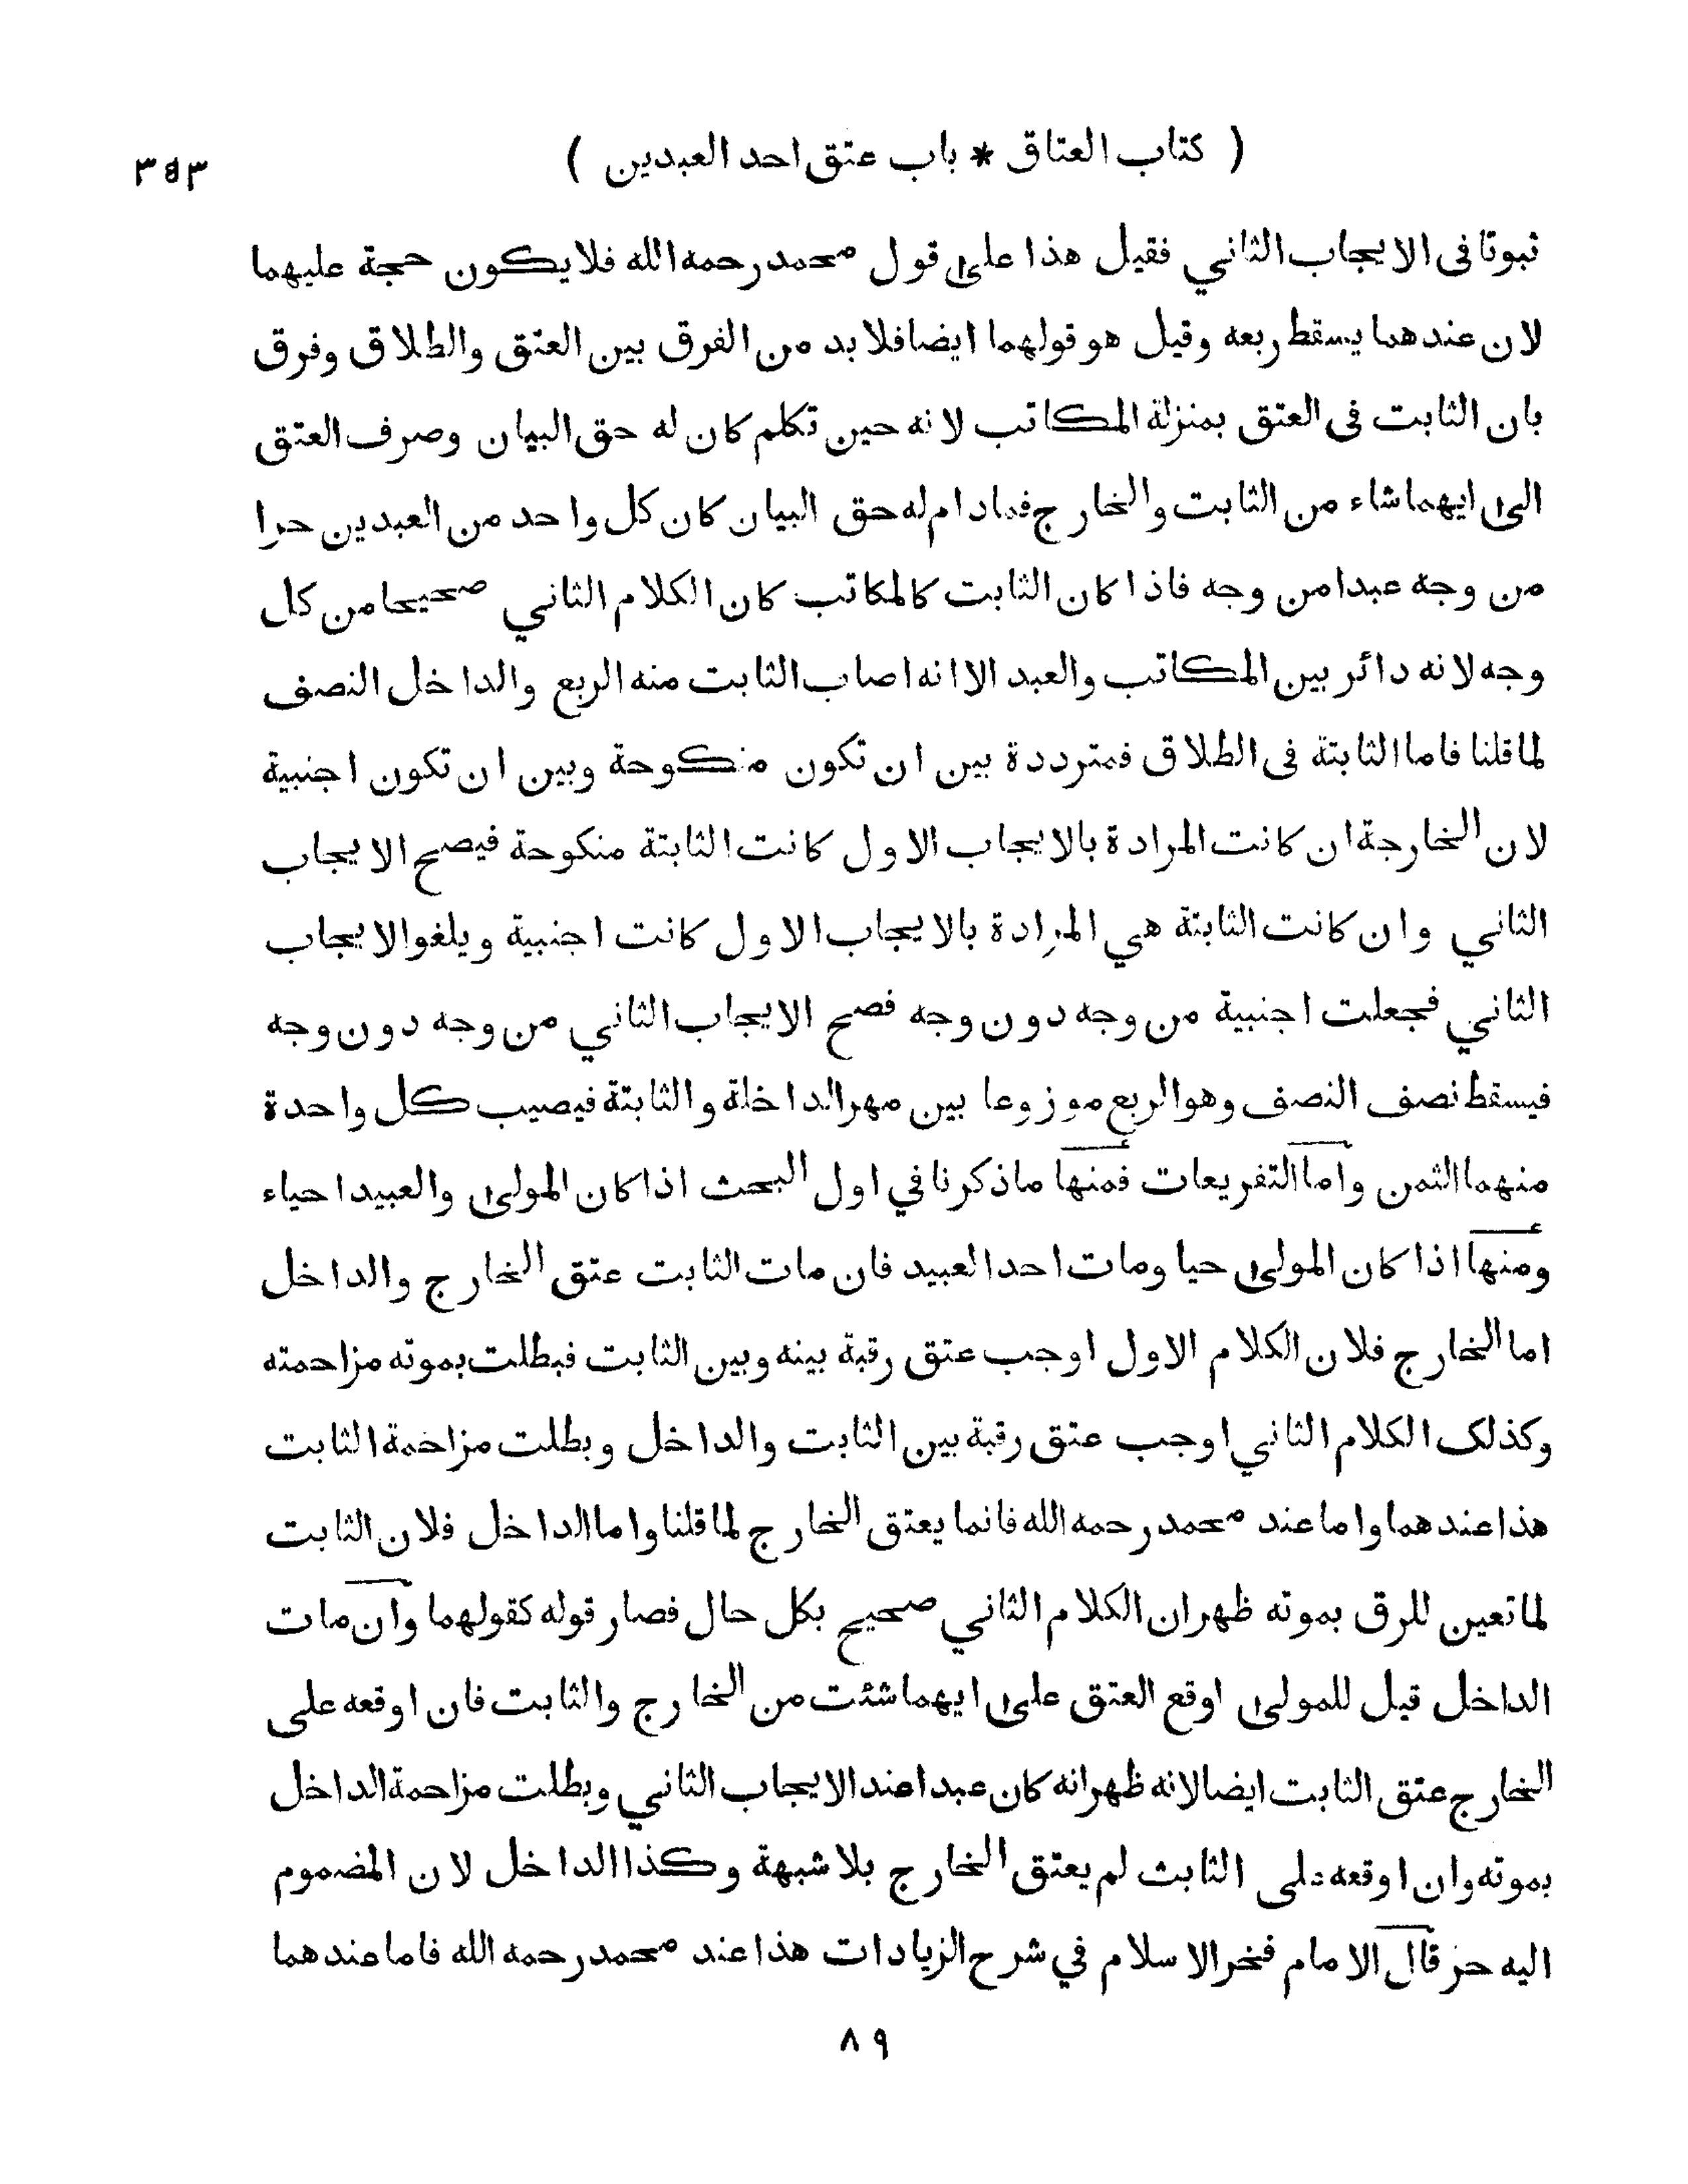 ( كتاب العتاق * باب عتق احد العبدين )
٣٥٣
ثبوتا فى الايجاب الثاني فقيل هذا على قول محمد رحمه الله فلا يكون حجة عليهما
لان عندهما يسقط ربعه وقيل هو قولهما ايضا فلا بد من الفرق بين العتق والطلاق وفرق
بان الثابت فى العتق بمنزلة المكاتب لانه حين تكلم كان له حق البيان وصرف العتق
الى ايهما شاء من الثابت والخارج فمادام له حق البيان كان كل واحد من العبدين حرا
من وجه عبدا من وجه فاذا كان الثابت كالمكاتب كان الكلام الثاني صحيحا من كل
وجه لانه دائر بين المكاتب والعبد الا انه اصاب الثابت منه الربع والداخل النصف
لما قلنا فاما الثابتة فى الطلاق فمترددة بين ان تكون منكوحة وبين ان تكون اجنبية
لان الخارجة ان كانت المرادة بالايجاب الاول كانت الثابتة منكوحة فيصح الايجاب
الثاني وان كانت الثابتة هي المرادة بالايجاب الاول كانت اجنبية ويلغو الايجاب
الثاني فجعلت اجنبية من وجه دون وجه فصح الايجاب الثاني من وجه دون وجه
فيسقط نصف النصف وهو الربع موزوعا بين مهر الداخلة والثابتة فيصيب كل واحدة
منهما الثمن واما التفريعات فمنها ماذكرنا في اول البحث اذا كان المولى والعبيد احياء
ومنها اذا كان المولى حيا ومات احد العبيد فان مات الثابت عتق الخارج والداخل
اما الخارج فلان الكلام الاول اوجب عتق رقبة بينه وبين الثابت فبطلت بموته مزاحمته
وكذلك الكلام الثاني اوجب عتق رقبة بين الثابت والداخل وبطلت مزاحمة الثابت
هذا عندهما واما عند محمد رحمه الله فانما يعتق الخارج لما قلنا واما الداخل فلان الثابت
لما تعين للرق بموته ظهر ان الكلام الثاني صحيح بكل حال فصار قوله كقولهما وان مات
الداخل قيل للمولى اوقع العتق على ايهما شئت من الخارج والثابت فان اوقعه على
الخارج عتق الثابت ايضا لانه ظهر انه كان عبدا عند الايجاب الثاني وبطلت مزاحمة الداخل
بموته وان اوقعه على الثابت لم يعتق الخارج بلا شبهة وكذا الداخل لان المضموم
اليه حر قال الامام فخر الاسلام في شرح الزيادات هذا عند محمد رحمه الله فاما عندهما
٨٩